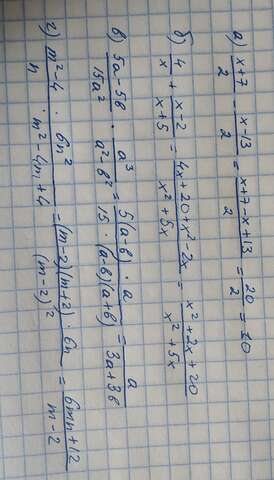 а) (x+7)/2 - (x-13)/2 = (x+7-x+13)/2 = 20/2 = 10
б) 4/x + (x-2)/(x+5) = (4x+20+x²-2x)/(x²+5x) = (x²+2x+20)/(x²+5x)
в) (5a-5в)/(15a²) · a³/(a²-в²) = (5(a-в)·a)/(15·(a-в)(a+в)) = a/(3a+3в)
г) (m²-4)/n · 6n²/(m²-4m+4) = ((m-2)(m+2)·6n)/(m-2)² = (6mn+12)/(m-2)